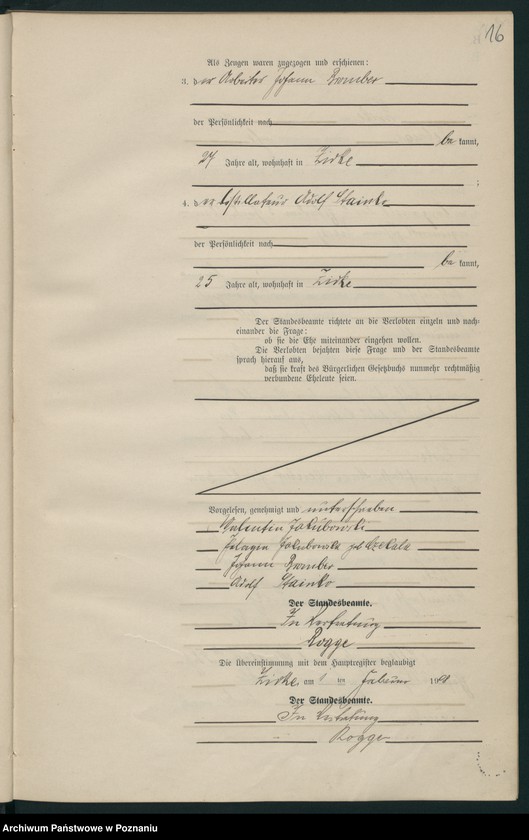 16
Als Zeugen waren zugezogen und erschienen:
3. der Arbeiter Johann
der Persönlichkeit nach
be kannt,
24 Jahre alt, wohnhaft in Zirke
;
4. der Destillateur Adolf Stainke
der Persönlichkeit nach
be kannt,
25 Jahre alt, wohnhaft in Zirke
Der Standesbeamte richtete an die Verlobten einzeln und nach-
einander die Frage:
ob sie die Ehe miteinander eingehen wollen.
Die Verlobten bejahten diese Frage und der Standesbeamte
sprach hierauf aus,
daß sie kraft des Bürgerlichen Gesetzbuchs nunmehr rechtmäßig
verbundene Eheleute seien.
Vorgelesen, genehmigt und unterschrieben
Valentin Jakubowski
Jakubowska geb
Johann
Adolf Stainke
Der Standesbeamte.
In Vertretung
Rogge
Die Übereinstimmung mit dem Hauptregister beglaubigt
Zirke am ten Februar 19
Der Standesbeamte.
In Vertretung
Rogge
Archiwum Państwowe w Poznaniu